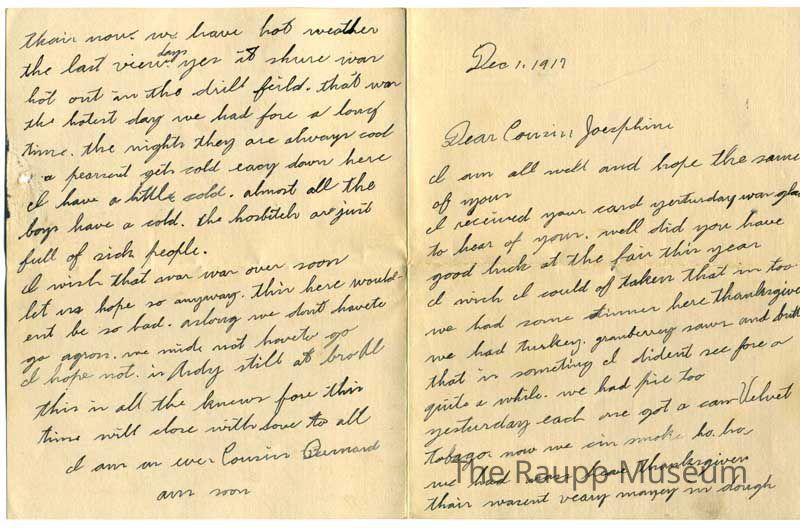 Dec 1. 1917
Dear Cousin Joesphine
I am all well and hope the same
of yours
I received your card yesterday was glad
to hear of your. well did you have
good luck at the fair this year
I wich I could of taken that in too.
we had some dinner here thanksgiven
we had turkey. granberrey saws and butter
that is someting I dident see fore a
quite a while. we had pie too
yesterday each one got a can Velvet
tobago. now we cin smoke. ho. ho.
we had here Thanksgiven
thair wasent veary maney in dough
thair now. we have hot weather
the last view days yes it shure was
hot out in the drill feild. that was
the hotest day we had fore a long
time. the nights they are always cool
a pearsent gets cold eacy down here
I have a little cold. almost all the
boys have a cold. the hosbitels are just
full of sick people.
I wish that war war over soon
let us hope so anyway. this here would-
ent be so bad. aslong we dont haveto
go agross. we mide not haveto go
I hope not. is Ardy still at
this is all the knews fore this
time will close with love to all
I am as ever Cousin Bernard
ans soon
The Raupp Museum